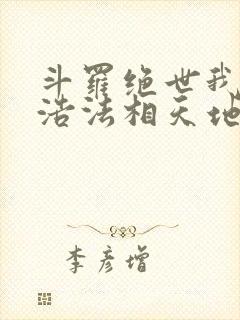 斗羅绝世我
浩法相天地
李彦增